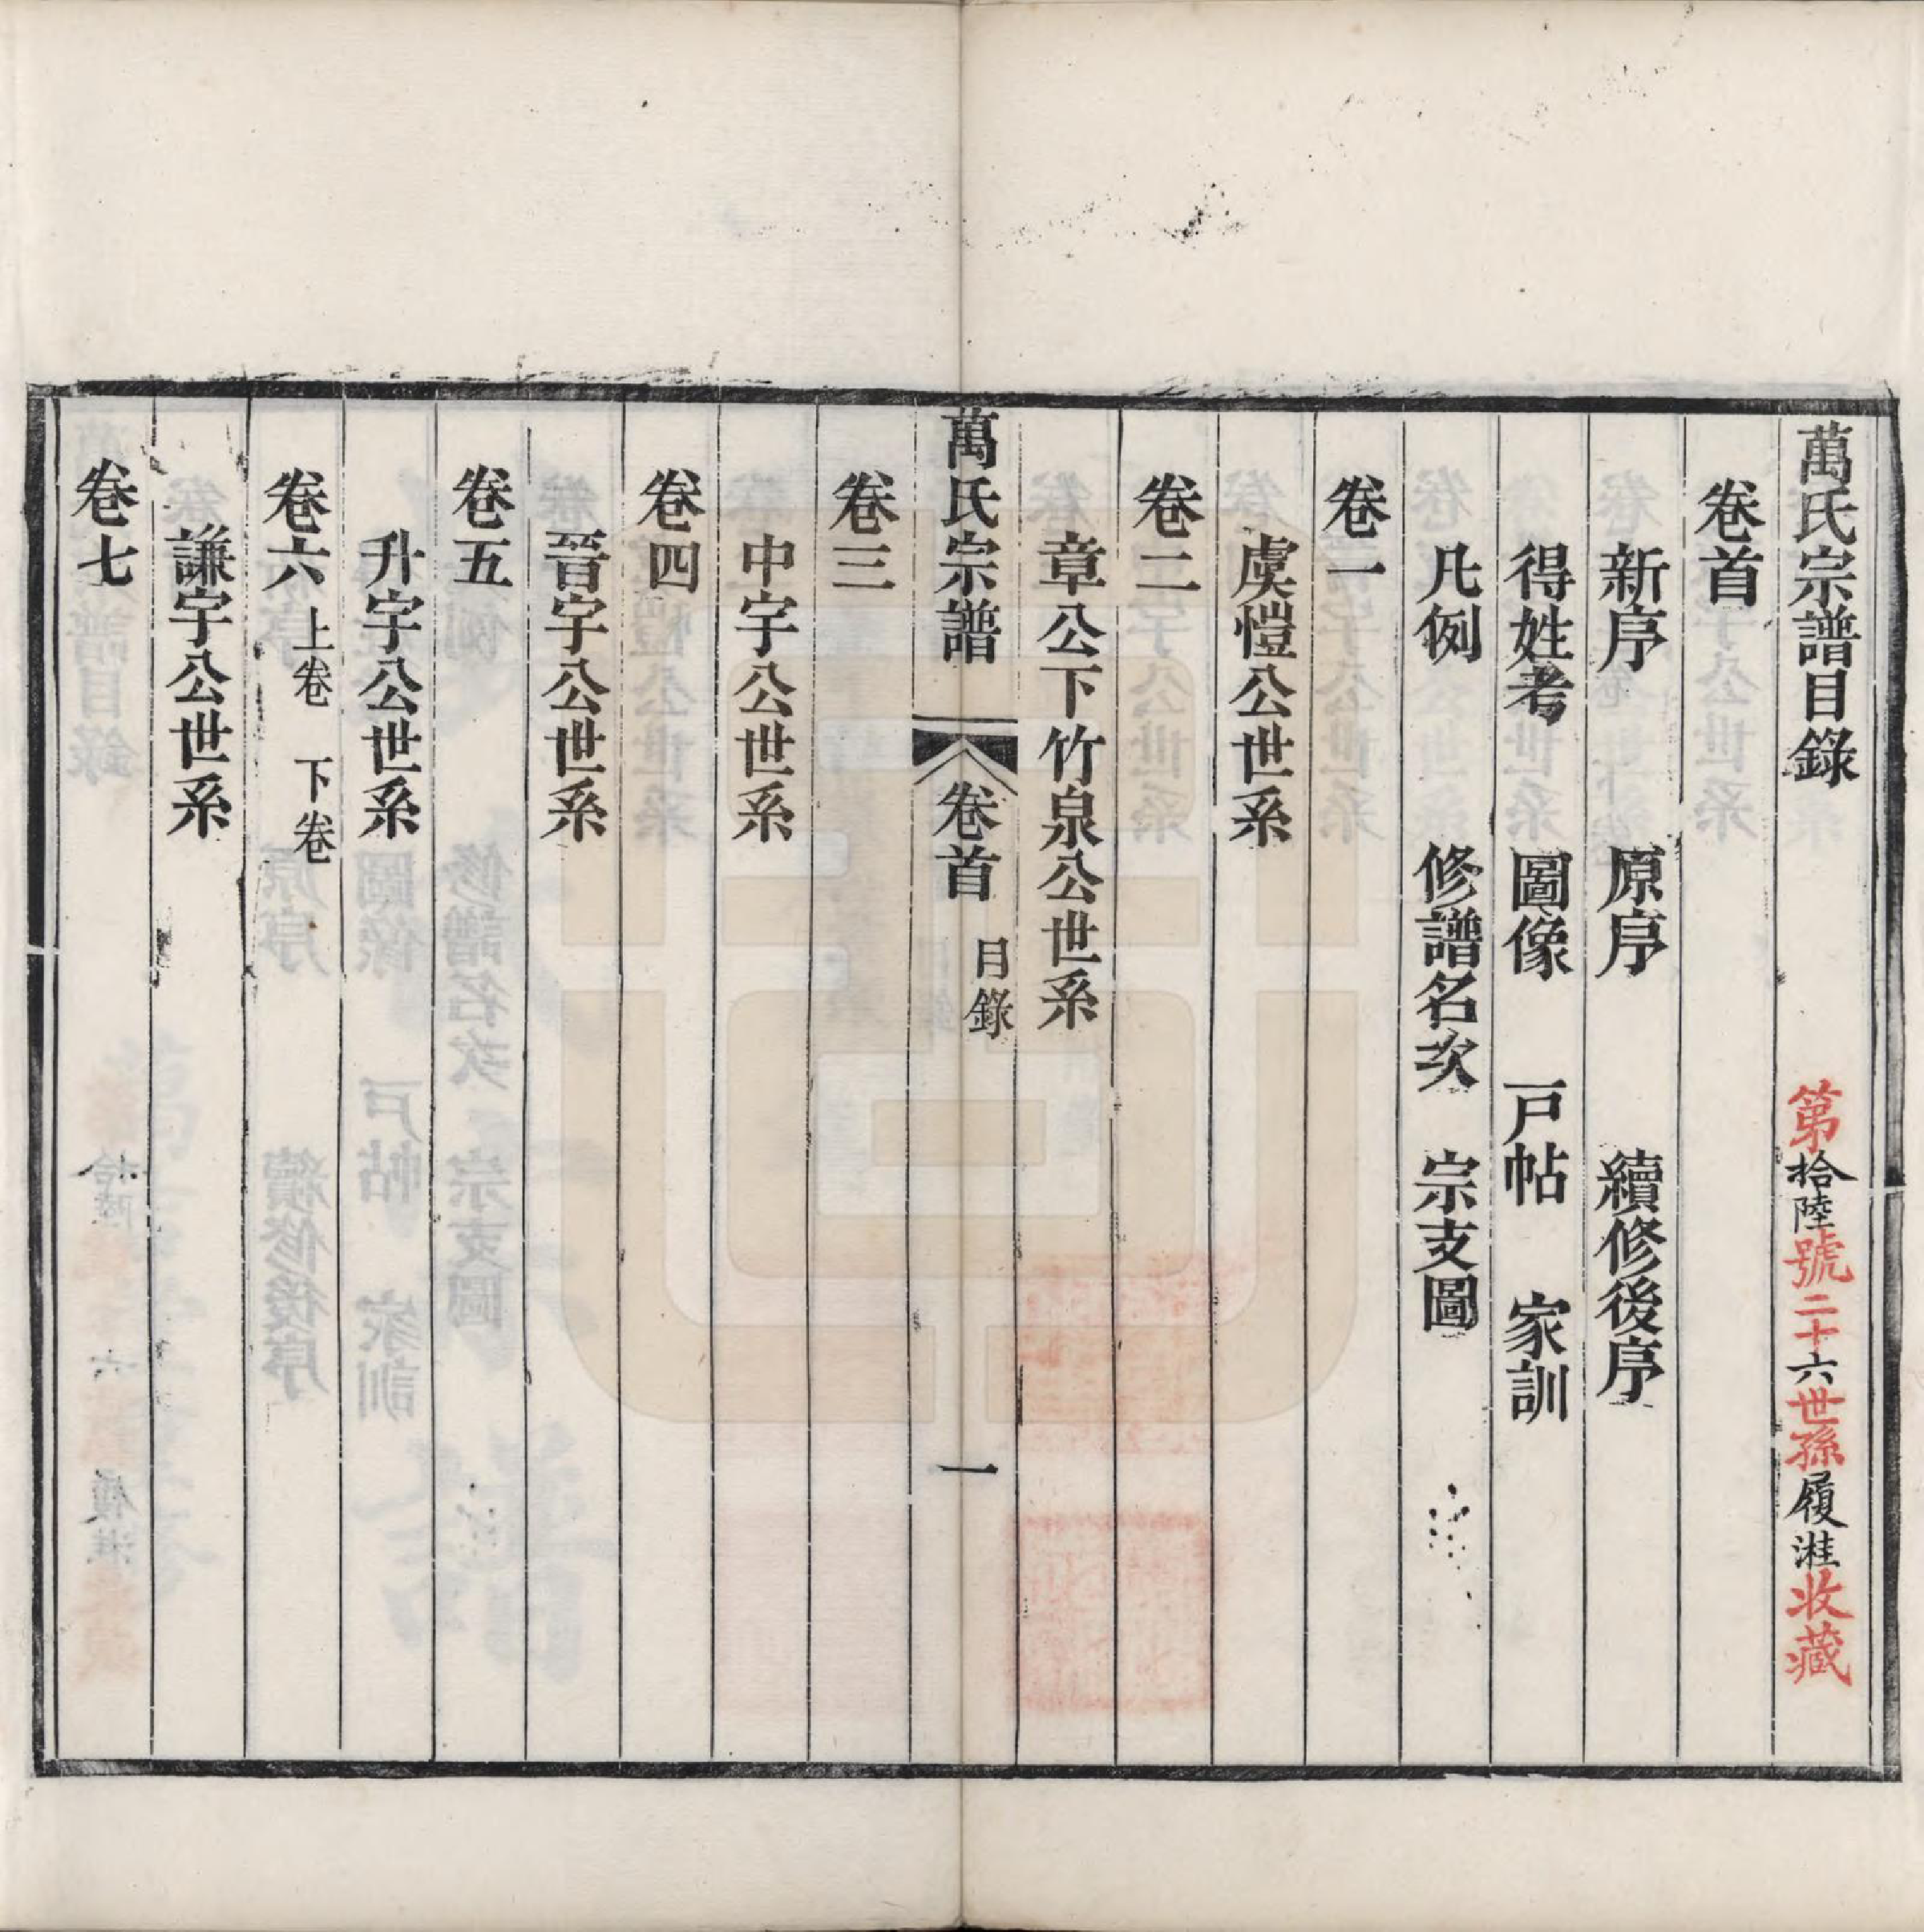 萬氏宗譜目錄 第拾陸號二十六世孫履溎收藏
卷首
新序 原序 續修後序
得姓考 圖像 戸帖 家訓
凡例 修譜名次 宗支圖
卷一
虞愷公世系
卷二
章公下竹泉公世系
萬氏宗譜 卷首 目錄 一
卷三
中字公世系
卷四
晉字公世系
卷五
升字公世系
卷六 上卷 下卷
謙字公世系
卷七